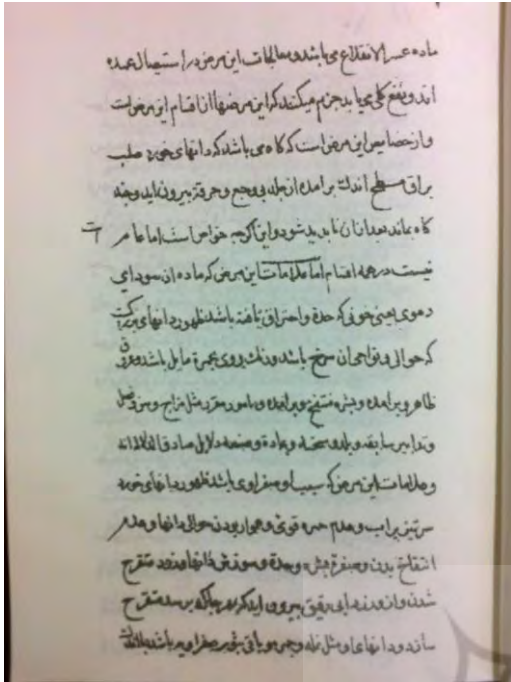 ماده عسر الانقلاع می باشد و معالجات این مرض در استیصال عمده
اند و نفع کلی می یابد جزم میکنند که این مرضها از اقسام این مرض است
و از خصایص این مرض است که کاه می باشد که دانهای خورد صلب
براق مسطح اندک برامده از جلد بی وجع و حرقة بیرون اید و چند
کاه بماند بعد ازان ناپدید شود و این اکرچه خواص است اما عام
نیست در همه اقسام اما علامات این مرض که ماده ان سودای
دموی یعنی خونی که حدة و احتراق یافته باشد ظهور دانهای
که حوالی و نواحی ان سرخ باشد و رنک روی بحمرة مایل باشد و
ظاهر و برامده و بشره منتفخ و برامده و بامور مقرره مثل مزاج و سن و فصل
و تدابیر سابقه و بلد و سحنه و عادة و صنعه دلایل صادق
و علامات این مرض که سبب او صفراوی باشد ظهور دانهای خورد
سرتیز پراب و عدم حمرة قوی و هموار بودن حوالی دانها و عدم
انتفاخ بدن و صفرة بشره وحدة و سوزش دانها و زود متقرح
شدن و از وی زردابی رقیق بیرون اید که بهر جا که برسد متقرح
سازد و دانهای او مثل نمله و جمره و باقی بثور صفراویه باشد